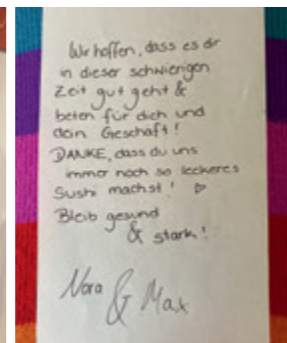 Wir hoffen, dass es dir
in dieser schwierigen
Zeit gut geht &
beten für dich und
dein Geschäft!
DANKE, dass du uns
immer noch so leckeres
Sushi machst!
Bleib gesund
& stark!
Nora
& Max